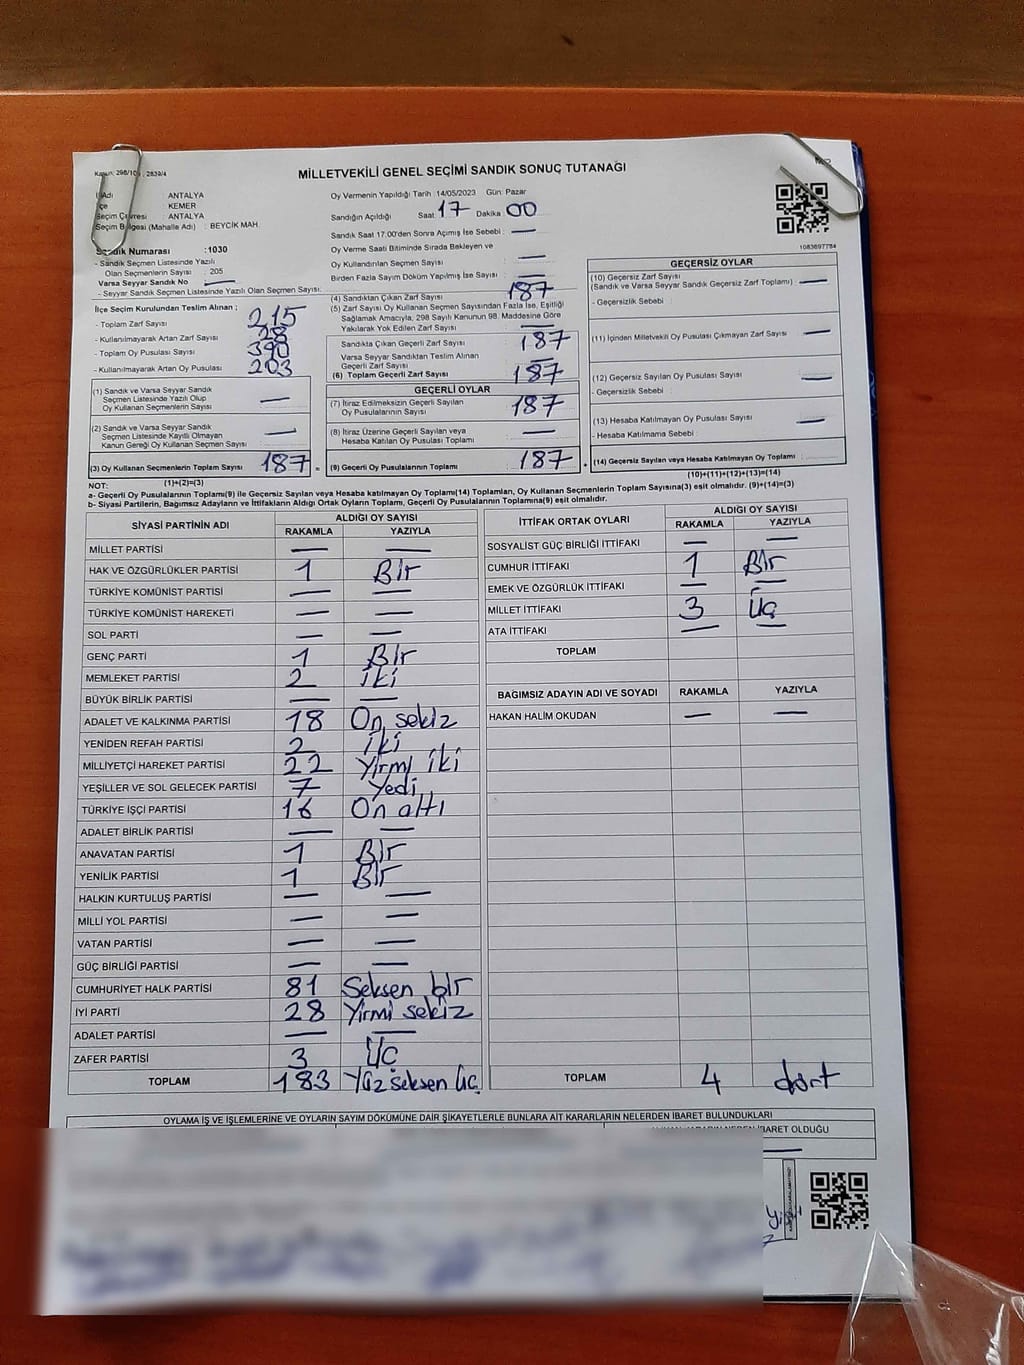 MİLLETVEKİLİ GENEL SEÇİMİ SANDIK SONUÇ TUTANAĞI
İl Adı : ANTALYA
İlçe : KEMER
Seçim Çevresi : ANTALYA
Seçim Bölgesi (Mahalle Adı) : BEYCİK MAH.
Sandık Numarası : 1030
- Sandık Seçmen Listesinde Yazılı
Olan Seçmenlerin Sayısı : 205
Varsa Seyyar Sandık No —
- Seyyar Sandık Seçmen Listesinde Yazılı Olan Seçmen Sayısı:
İlçe Seçim Kurulundan Teslim Alınan ;
- Toplam Zarf Sayısı 215
- Kullanılmayarak Artan Zarf Sayısı 28
- Toplam Oy Pusulası Sayısı 390
- Kullanılmayarak Artan Oy Pusulası 203
(1) Sandık ve Varsa Seyyar Sandık
Seçmen Listesinde Yazılı Olup
Oy Kullanan Seçmenlerin Sayısı —
(2) Sandık ve Varsa Seyyar Sandık
Seçmen Listesinde Kayıtlı Olmayan
Kanun Gereği Oy Kullanan Seçmen Sayısı —
(3) Oy Kullanan Seçmenlerin Toplam Sayısı 187 =
(1)+(2)=(3)
Oy Vermenin Yapıldığı Tarih : 14/05/2023 Gün: Pazar
Sandığın Açıldığı Saat 17 Dakika 00
Sandık Saat 17.00'den Sonra Açılmış İse Sebebi : —
Oy Verme Saati Bitiminde Sırada Bekleyen ve
Oy Kullandırılan Seçmen Sayısı —
Birden Fazla Sayım Döküm Yapılmış İse Sayısı : —
(4) Sandıktan Çıkan Zarf Sayısı 187
(5) Zarf Sayısı Oy Kullanan Seçmen Sayısından Fazla İse, Eşitliği
Sağlamak Amacıyla, 298 Sayılı Kanunun 98. Maddesine Göre
Yakılarak Yok Edilen Zarf Sayısı —
Sandıkta Çıkan Geçerli Zarf Sayısı 187
Varsa Seyyar Sandıktan Teslim Alınan
Geçerli Zarf Sayısı —
(6) Toplam Geçerli Zarf Sayısı 187
GEÇERLİ OYLAR
(7) İtiraz Edilmeksizin Geçerli Sayılan
Oy Pusulalarının Sayısı 187
(8) İtiraz Üzerine Geçerli Sayılan veya
Hesaba Katılan Oy Pusulası Toplamı —
(9) Geçerli Oy Pusulalarının Toplamı 187 +
1083697784
GEÇERSİZ OYLAR
(10) Geçersiz Zarf Sayısı
(Sandık ve Varsa Seyyar Sandık Geçersiz Zarf Toplamı) : —
- Geçersizlik Sebebi :
(11) İçinden Milletvekili Oy Pusulası Çıkmayan Zarf Sayısı —
(12) Geçersiz Sayılan Oy Pusulası Sayısı —
- Geçersizlik Sebebi :
(13) Hesaba Katılmayan Oy Pusulası Sayısı —
- Hesaba Katılmama Sebebi :
(14) Geçersiz Sayılan veya Hesaba Katılmayan Oy Toplamı :
(10)+(11)+(12)+(13)=(14)
NOT:
a- Geçerli Oy Pusulalarının Toplamı(9) ile Geçersiz Sayılan veya Hesaba katılmayan Oy Toplamı(14) Toplamları, Oy Kullanan Seçmenlerin Toplam Sayısına(3) eşit olmalıdır. (9)+(14)=(3)
b- Siyasi Partilerin, Bağımsız Adayların ve İttifakların Aldığı Ortak Oyların Toplamı, Geçerli Oy Pusulalarının Toplamına(9) eşit olmalıdır.
SİYASİ PARTİNİN ADI ALDIĞI OY SAYISI
RAKAMLA YAZIYLA
MİLLET PARTİSİ — —
HAK VE ÖZGÜRLÜKLER PARTİSİ 1 Bir
TÜRKİYE KOMÜNİST PARTİSİ — —
TÜRKİYE KOMÜNİST HAREKETİ — —
SOL PARTİ — —
GENÇ PARTİ 1 Bir
MEMLEKET PARTİSİ 2 iki
BÜYÜK BİRLİK PARTİSİ — —
ADALET VE KALKINMA PARTİSİ 18 On sekiz
YENİDEN REFAH PARTİSİ 2 iki
MİLLİYETÇİ HAREKET PARTİSİ 22 Yirmi iki
YEŞİLLER VE SOL GELECEK PARTİSİ 7 Yedi
TÜRKİYE İŞÇİ PARTİSİ 16 On altı
ADALET BİRLİK PARTİSİ — —
ANAVATAN PARTİSİ 1 Bir
YENİLİK PARTİSİ 1 Bir
HALKIN KURTULUŞ PARTİSİ — —
MİLLİ YOL PARTİSİ — —
VATAN PARTİSİ — —
GÜÇ BİRLİĞİ PARTİSİ — —
CUMHURİYET HALK PARTİSİ 81 Seksen bir
İYİ PARTİ 28 Yirmi sekiz
ADALET PARTİSİ — —
ZAFER PARTİSİ 3 Üç
TOPLAM 183 Yüz seksen üç
İTTİFAK ORTAK OYLARI ALDIĞI OY SAYISI
RAKAMLA YAZIYLA
SOSYALİST GÜÇ BİRLİĞİ İTTİFAKI — —
CUMHUR İTTİFAKI 1 Bir
EMEK VE ÖZGÜRLÜK İTTİFAKI — —
MİLLET İTTİFAKI 3 Üç
ATA İTTİFAKI — —
TOPLAM
BAĞIMSIZ ADAYIN ADI VE SOYADI RAKAMLA YAZIYLA
HAKAN HALİM OKUDAN — —
TOPLAM 4 dört
OYLAMA İŞ VE İŞLEMLERİNE VE OYLARIN SAYIM DÖKÜMÜNE DAİR ŞİKAYETLERLE BUNLARA AİT KARARLARIN NELERDEN İBARET BULUNDUKLARI
İBARET OLDUĞU